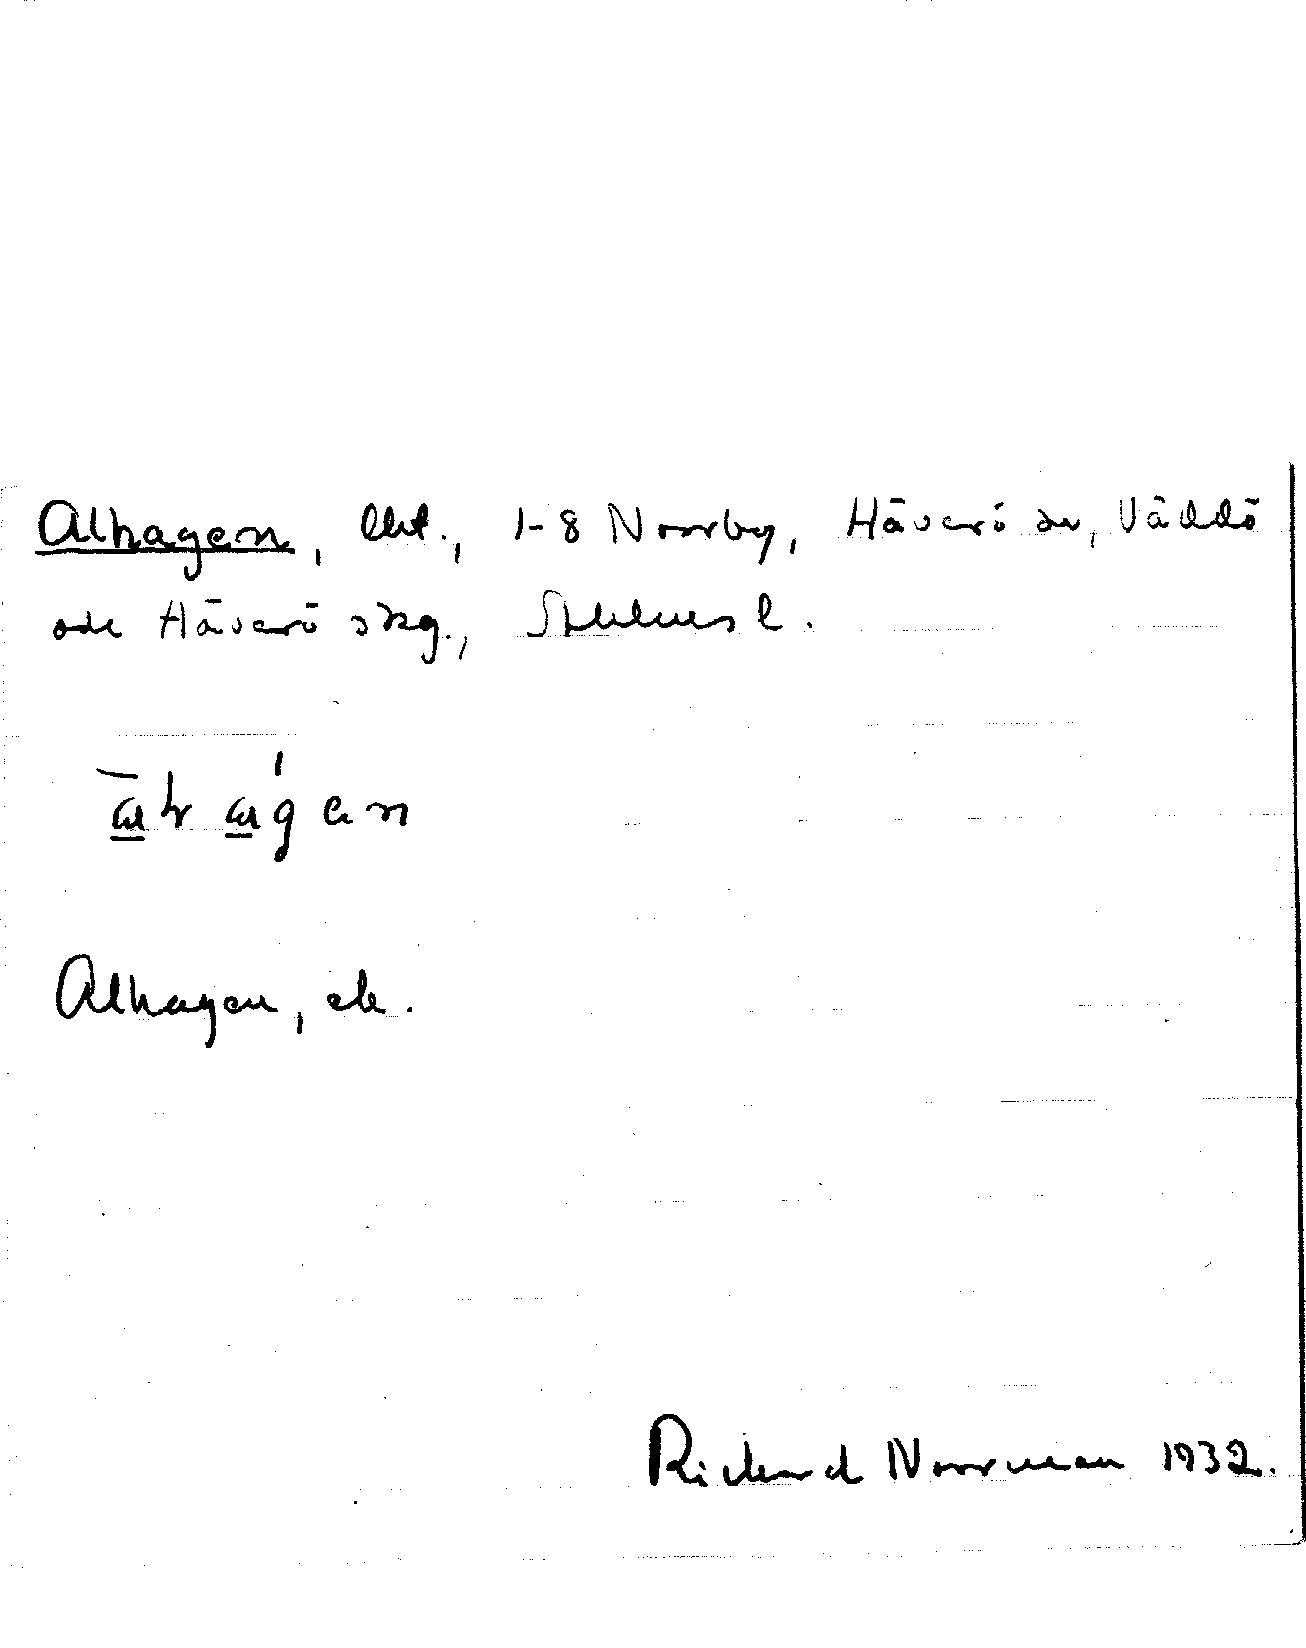 Alhagen, lht., 1-8 Norrby, Häverö sn, Väddö
och Häverö skg., Sthlms l.
Alhagen, ek.
Rickard Norrman 1932.